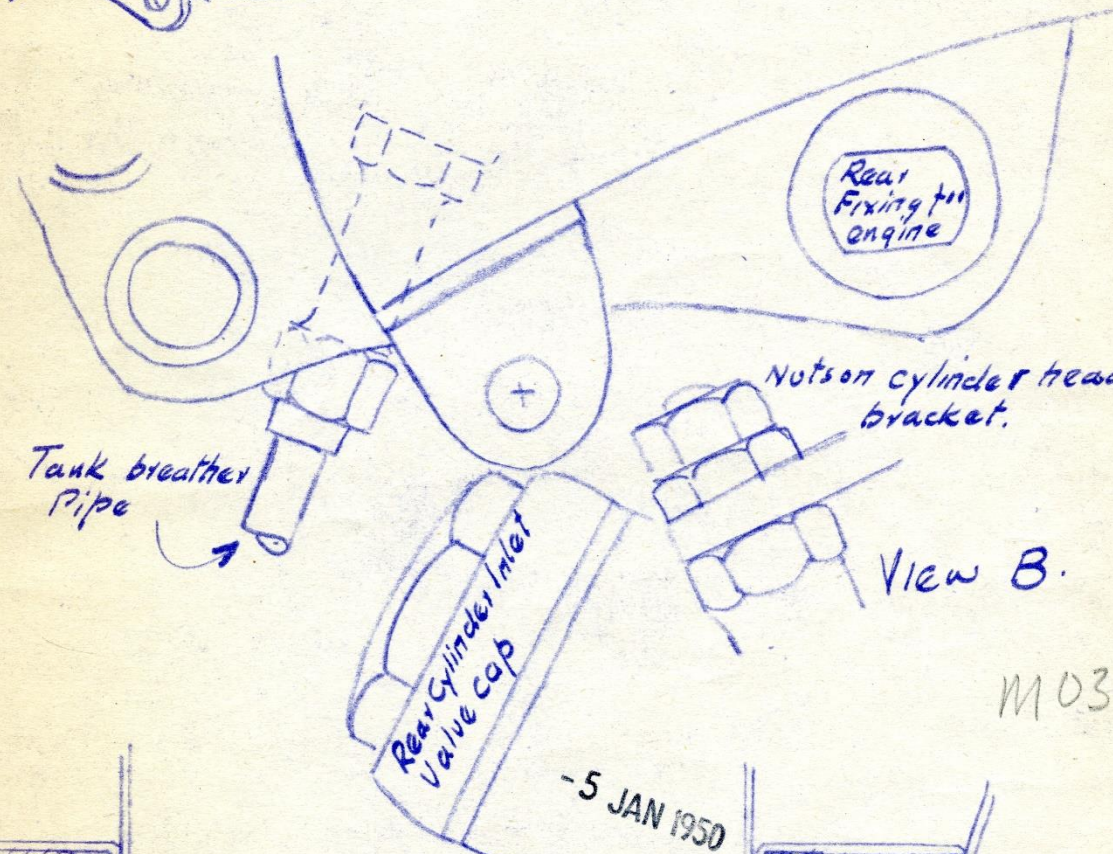 Rear
Fixing for
engine
Nuts on cylinder head
bracket.
Tank breather
Pipe
Rear Cylinder Inlet
Valve cap
View B.
M03
-5 JAN 1950